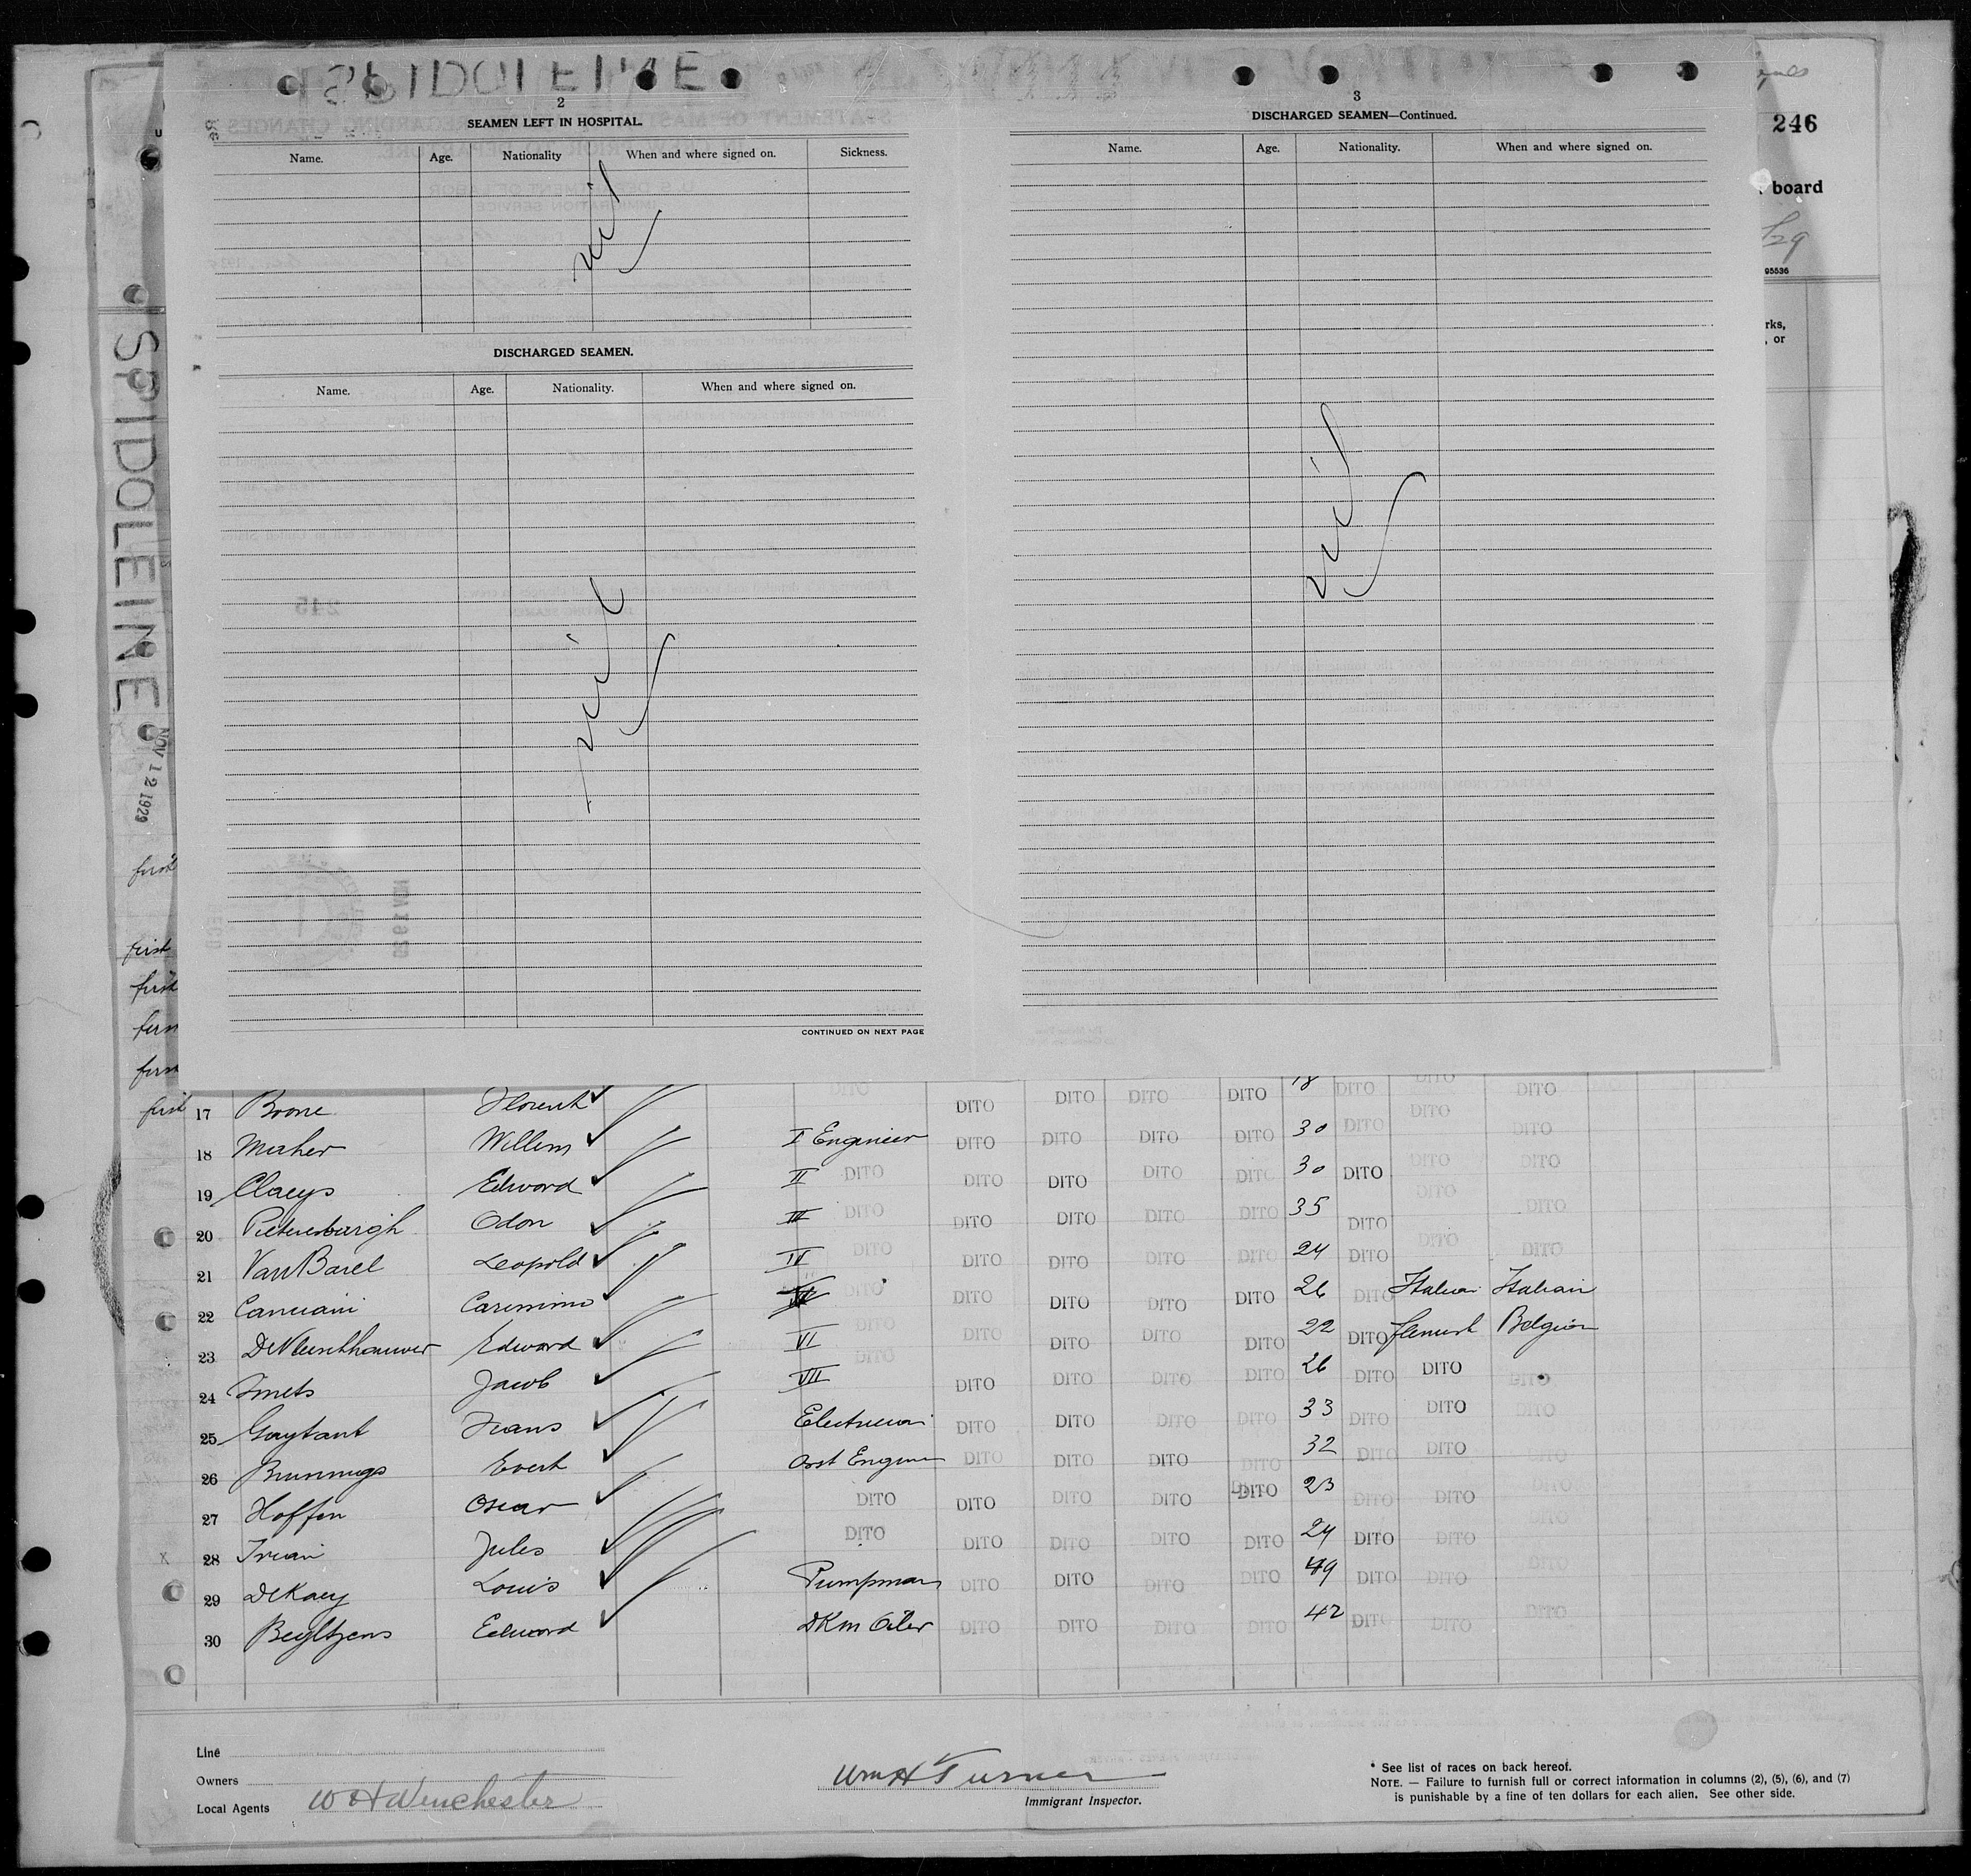 SPIDOLEINE
2
SEAMEN LEFT IN HOSPITAL.
Name. Age. Nationality When and where signed on. Sickness.
nil
DISCHARGED SEAMEN.
Name. Age. Nationality. When and where signed on.
nil
CONTINUED ON NEXT PAGE
3
DISCHARGED SEAMEN—Continued.
Name. Age. Nationality. When and where signed on.
nil
246
board
95536
rks,
, or
SPIDOLEINE
NOV 12 1929
first
first
first
first 17 Boone Florent DITO DITO DITO DITO DITO 18 DITO DITO DITO
18 Maher Willem I Engineer DITO DITO DITO DITO 30 DITO DITO DITO
19 Claeys Edward II DITO DITO DITO DITO DITO 30 DITO DITO DITO
20 Odon III DITO DITO DITO DITO DITO 35 DITO DITO DITO
21 Van Barel Leopold IV DITO DITO DITO DITO DITO 24 DITO DITO DITO
22 DITO DITO DITO DITO DITO 26 DITO Italian Italian
23 Edward VI DITO DITO DITO DITO DITO 22 DITO flemish Belgian
24 Smets Jacob VII DITO DITO DITO DITO DITO 26 DITO DITO DITO
25 Gaytant Frans Electrician DITO DITO DITO DITO 33 DITO DITO DITO
26 Brunnings Evert Asst Engineer DITO DITO DITO DITO 32 DITO DITO
27 Hoffen Oscar DITO DITO DITO DITO DITO 23 DITO DITO DITO
28 Jules DITO DITO DITO DITO DITO 24 DITO DITO DITO
29 DeKaey Louis Pumpman DITO DITO DITO DITO 49 DITO DITO DITO
30 Beyltjens Edward DKm Oiler DITO DITO DITO DITO 42 DITO DITO DITO
Line
Owners
Local Agents W H Winchester
Wm H Turner
Immigrant Inspector.
* See list of races on back hereof.
NOTE. — Failure to furnish full or correct information in columns (2), (5), (6), and (7)
is punishable by a fine of ten dollars for each alien. See other side.